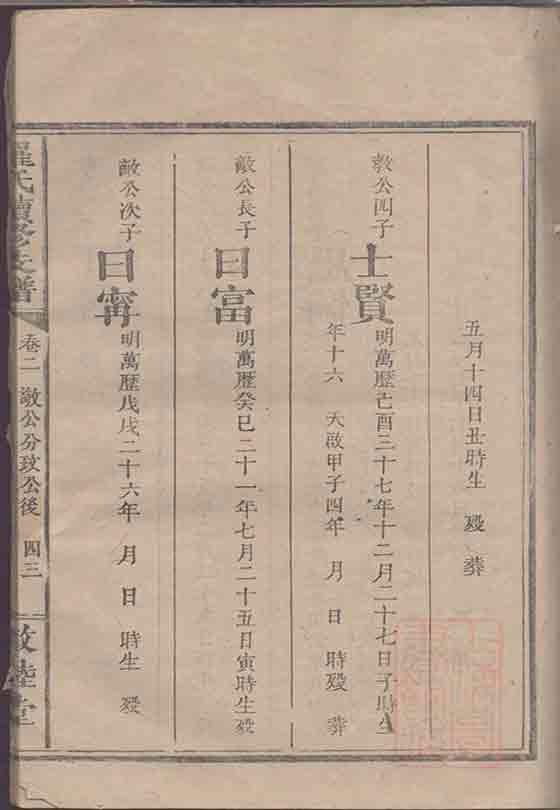 五月十四日丑時生 歿 葬
教公四子
士賢
明萬歷己酉三十七年十二月二十七日子時生
年十六 天啟甲子四年 月 日 時歿 葬
敵公長子
曰富
明萬歷癸巳二十一年七月二十五日寅時生歿
敵公次子
曰寗
明萬歷戊戌二十六年 月 日 時生 歿
羅氏續修支譜
卷二 敵公分政公後 四三
敦睦堂